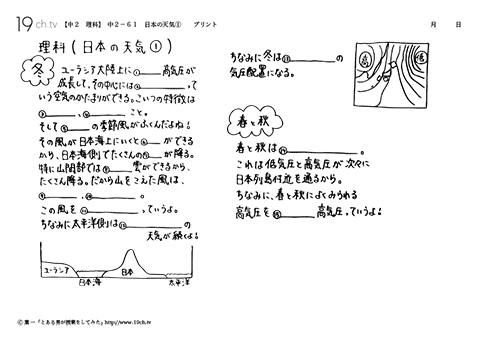 19ch.tv 【中2 理科】 中2－61 日本の天気① プリント 月 日
理科(日本の天気①)
冬
ユーラシア大陸上に①____高気圧が
成長して、その中心には②________,って
いう空気のかたまりができる。こいつの特徴は
③______、④______ こと。
そして⑤____の季節風がふくんだよね!
その風が日本海上にいくと⑥____ができる
から、日本海側でたくさんの⑦____が降る。
特に山間部では⑧____雲ができるから、
たくさん降る。だから山をこえた風は、
⑨______、⑩______。
この風を⑪________っていうよ。
ちなみに太平洋側は⑫________の
天気が続くよ!
ユーラシア
日本
日本海
太平洋
ちなみに冬は⑬________の
気圧配置になる。
高
低
春と秋
春と秋は⑭____________。
これは低気圧と高気圧が次々に
日本列島付近を通るから。
ちなみに、春と秋によくみられる
高気圧を⑮______高気圧っていうよ!
© 葉一「とある男が授業をしてみた」http://www.19ch.tv